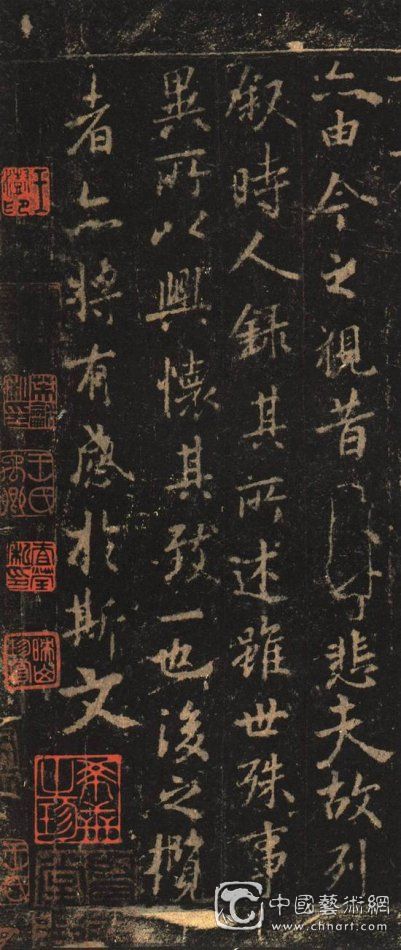 亦由今之視昔悲夫故列
敘時人錄其所述雖世殊事
異所以興懷其致一也後之攬
者亦將有感於斯文
中國藝術網
www.chhart.com